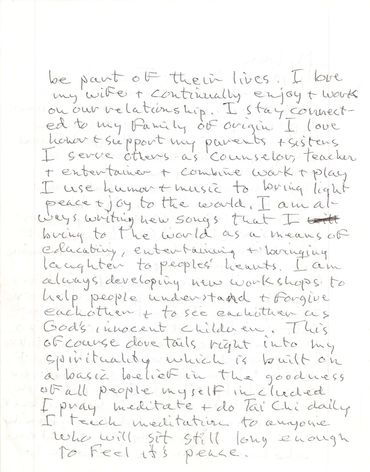 be part of their lives. I love
my wife + continually enjoy + work
on our relationship. I stay connect-
ed to my family of origin I love
honor + support my parents + sisters
I serve others as counselor, teacher
+ entertainer + combine work + play
I use humor + music to bring light
peace + joy to the world. I am al-
ways writing new songs that I
bring to the world as a means of
educating, entertaining + bringing
laughter to peoples' hearts. I am
always developing new workshops to
help people understand + forgive
eachother + to see eachother as
God's innocent children. This
ofcourse dove tails right into my
spirituality which is built on
a basic belief in the goodness
of all people myself included
I pray meditate + do Tai Chi daily
I teach meditation to anyone
who will sit still long enough
to feel it's peace.